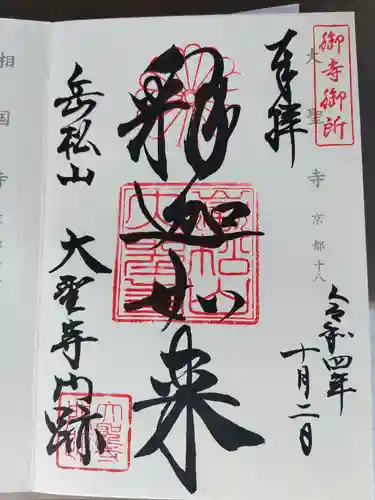 御寺御所
大聖寺 京都十八
奉拝
令和四年
十月二日
釈迦如来
岳松山
大聖寺門跡
相国寺